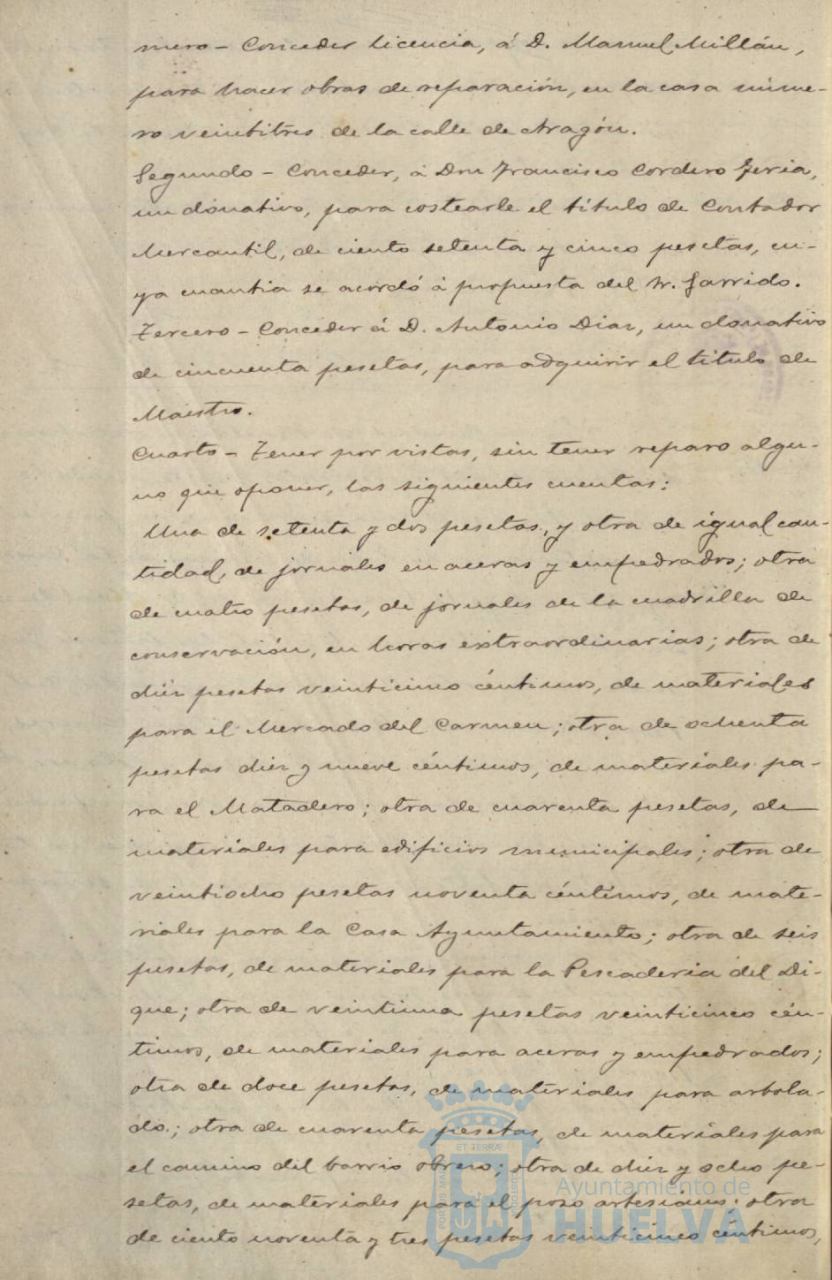 mero – Conceder licencia, á D. Manuel Millán,
para hacer obras de reparación, en la casa núme-
ro veintitres de la calle de Aragón.
Segundo – Conceder, á Don Francisco Cordero Feria,
un donativo, para costearle el título de Contador
Mercantil, de ciento setenta y cinco pesetas, cu-
ya cuantia se acordó á propuesta del Sr. Garrido.
Tercero – Conceder á D. Antonio Diaz, un donativo
de cincuenta pesetas, para adquirir el título de
Maestro.
Cuarto – Tener por vistas, sin tener reparo algu-
no que oponer, las siguientes cuentas:
Una de setenta y dos pesetas, y otra de igual can-
tidad, de jornales en aceras y empedrados; otra
de cuatro pesetas, de jornales de la cuadrilla de
conservación, en horas extraordinarias; otra de
diez pesetas veinticinco céntimos, de materiales
para el Mercado del Carmen; otra de ochenta
pesetas diez y nueve céntimos, de materiales pa-
ra el Matadero; otra de cuarenta pesetas, de
materiales para edificios municipales; otra de
veintiocho pesetas noventa céntimos, de mate-
riales para la Casa Ayuntamiento; otra de seis
pesetas, de materiales para la Pescaderia del Di-
que; otra de veintiuna pesetas veinticinco cén-
timos, de materiales para aceras y empedrados;
otra de doce pesetas, de materiales para arbola-
do; otra de cuarenta pesetas, de materiales para
el camino del barrio obrero; otra de diez y ocho pe-
setas, de materiales para el pozo artesiano; otra
de ciento noventa y tres pesetas veinticinco centimos,
Ayuntamiento de
HUELVA